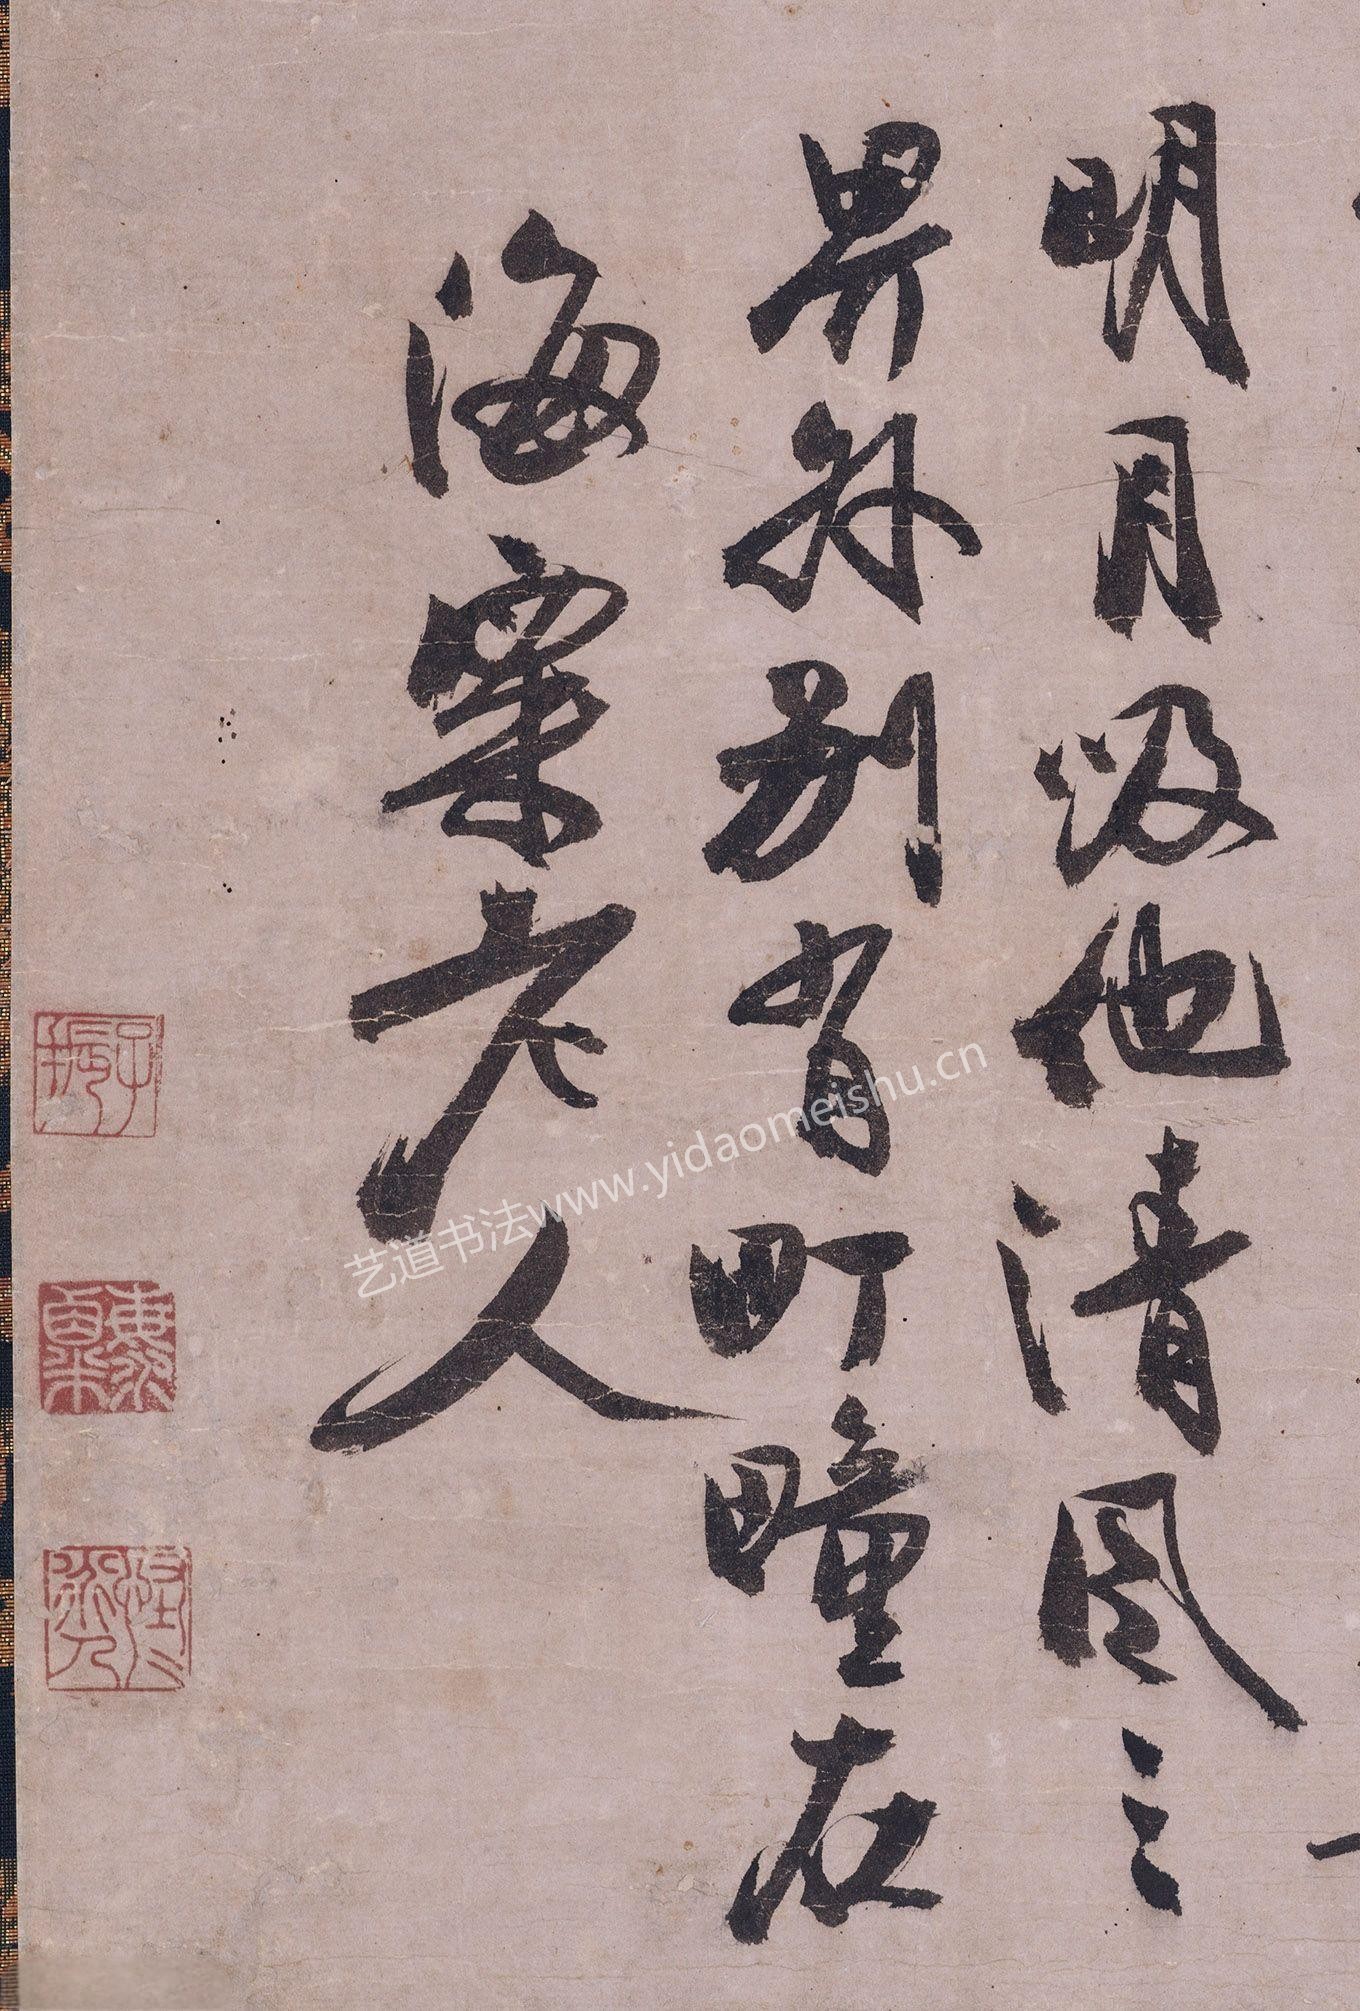 明月吸他清风三
界外别有町疃在
海粟老人
子振
艺道书法www.yidaomeishu.cn